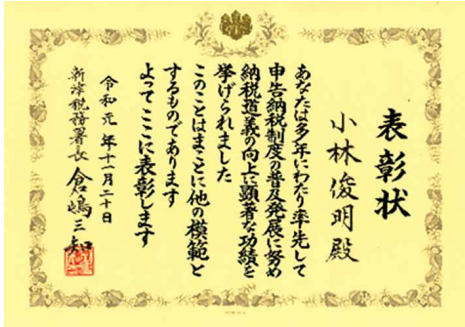 表彰状
小林俊明殿
あなたは多年にわたり率先して
申告納税制度の普及発展に努め
納税道義の向上に顕著な功績を
挙げられました
このことはまことに他の模範と
するものであります
よってここに表彰します
令和元年十一月二十日
新津税務署長 倉嶋三知